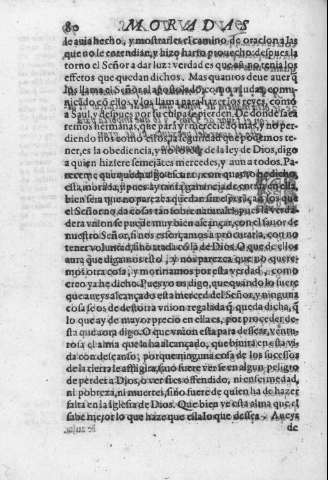 80 MORADAS
le auia hecho, y mostrarles el camino de oracion a las
que no le entendian, y hizo harto prouecho: despues la
torno el Señor a dar luz: verdad es que aun no tenia los
efetos que quedan dichos. Mas quantos deue auer q̃
los llama el Señor al apostolado, como a Iudas, comu
nicādo cō ellos, y los llama para hazer los reyes, como
a Saul, y despues por su culpa se pierden. De donde saca
remos hermanas, que para yr mereciēdo mas, y no per-
diendo nos como estos, la seguridad que podemos te-
ner, es la obediencia, y no torcer de la ley de Dios, digo
a quien hiziere semejātes mercedes, y aun a todos. Pa
receme que queda algo escura, con quanto he dicho,
esta morada, y pues ay tanta ganācia de entrar en ella,
bien sera que no parezca quedan sin esperāça, a los que
el Señor no da cosas tan sobrenaturales, pues la verda
dera vnion se puede muy bien alcançar, con el fauor de
nuestro Señor, si nos esforçamos a procurarla, con no
tener voluntad, sino atada cō la de Dios. O que de ellos
aura que digamos esto, y nos parezca que no quere-
mos otra cosa, y moririamos por esta verdad, como
creo ya he dicho. Pues yo os digo, que quando lo fuere
que aueys alcançado esta merced del Señor, y ninguna
cosa se os de de stotra vnion regalada q̃ queda dicha, q̃
lo que ay de mayor precio en ella es, por proceder de
sta que aora digo. O que vnion esta para dessear, ventu-
rosa el alma que la ha alcançado, que biuira en esta vi-
da con descanso; porque ninguna cosa de los sucessos
de la tierra le afligira, sino fuere verse en algun peligro
de perder a Dios, o ver si es offendido, ni enfermedad,
ni pobreza, ni muertes, sino fuere de quien ha de hazer
falta en la Iglesia de Dios. Que bien ve esta alma que el
sabe mejor lo que haze que ella lo que dessea. Aueys
de